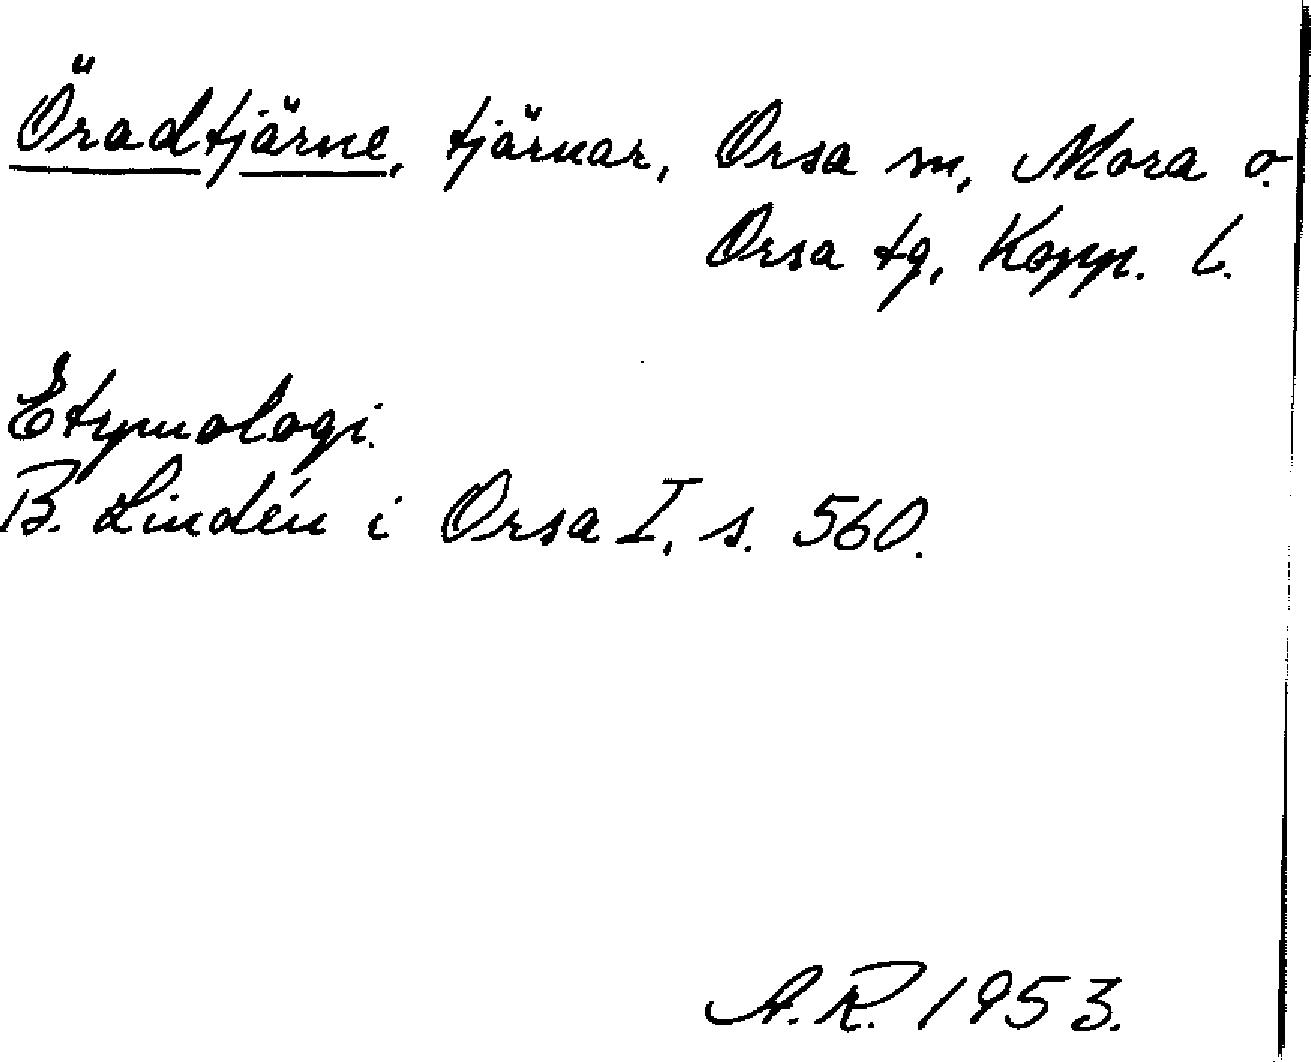 Öradtjärne, tjärnar, Orsa sn, Mora o.
Orsa tg, Kopp. l.
Etymologi.
B. Lindén i Orsa I, s. 560.
A.R. 1953.